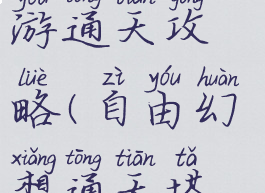 yóu tōng tiān gōng
游通天攻
lüè zì yóu huàn
略(自由幻
xiǎng tōng tiān tǎ
想通天塔